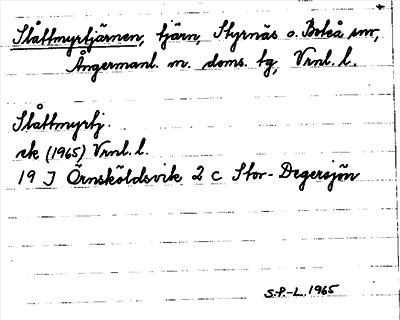 Slåttmyrtjärnen, tjärn, Styrnäs o. Boteå snr,
Ångermanl. m. doms. tg, Vrnl. l.
Slåttmyrtj.
ek (1965) Vrnl. l.
19 J Örnsköldsvik 2 c Stor-Degersjön
S.P-L. 1965